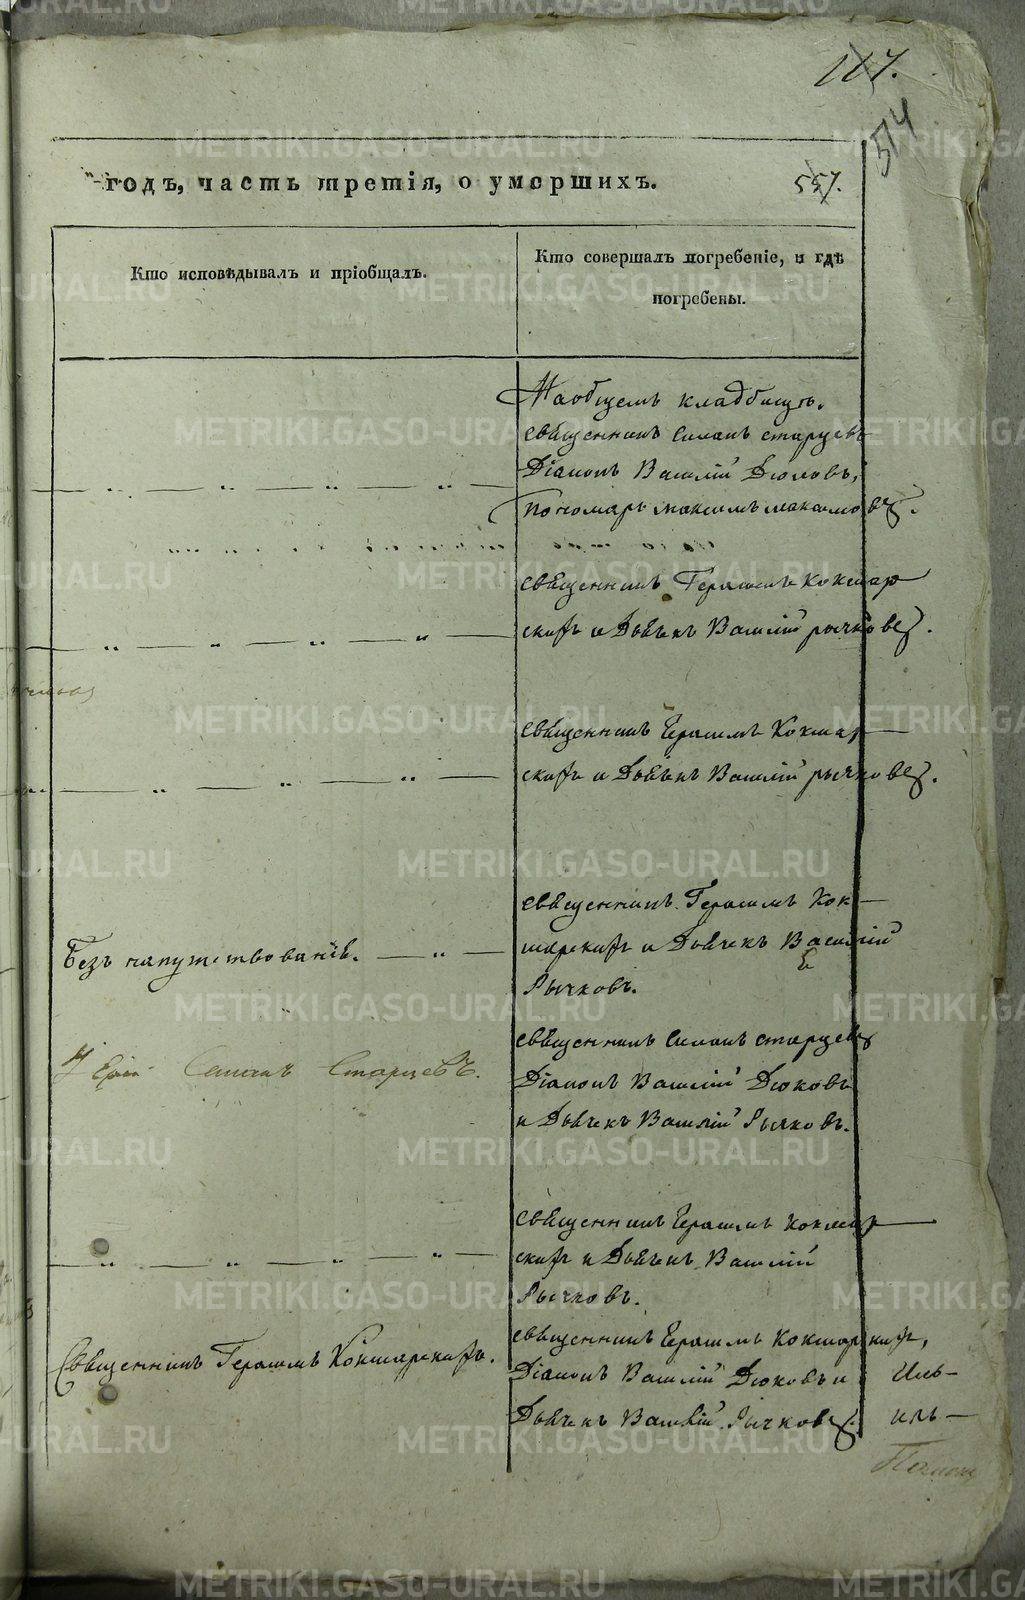 117.
514
годъ, часть третія, о умершихъ. 557.
Кто исповѣдывалъ и пріобщалъ.
Кто совершалъ погребеніе, и гдѣ
погребены.
На общемъ кладбищѣ.
священникъ Симонъ Старцевъ
Діаконъ Василій Дюковъ,
Пономарь Максимъ Максимовъ.
священникъ Герасимъ Кокшар
скихъ и Дьячекъ Василій Рычковъ.
священникъ Герасимъ Кокшар
скихъ и Дьячекъ Василій Рычковъ.
священникъ Герасимъ Кок
шарскихъ и Дьячекъ Василій
Рычковъ.
Безъ напутствованія.
священникъ Симонъ Старцевъ
Іерей Симонъ Старцевъ.
Діаконъ Василій Дюковъ
и Дьячекъ Василій Рычковъ.
священникъ Герасимъ Кокшар
скихъ и Дьячекъ Василій
Рычковъ.
Священникъ Герасимъ Кокшарскихъ.
священникъ Герасимъ Кокшарскихъ,
Діаконъ Василій Дюковъ и
Дьячекъ Василій Рычковъ.
METRIKI.GASO-URAL.RU